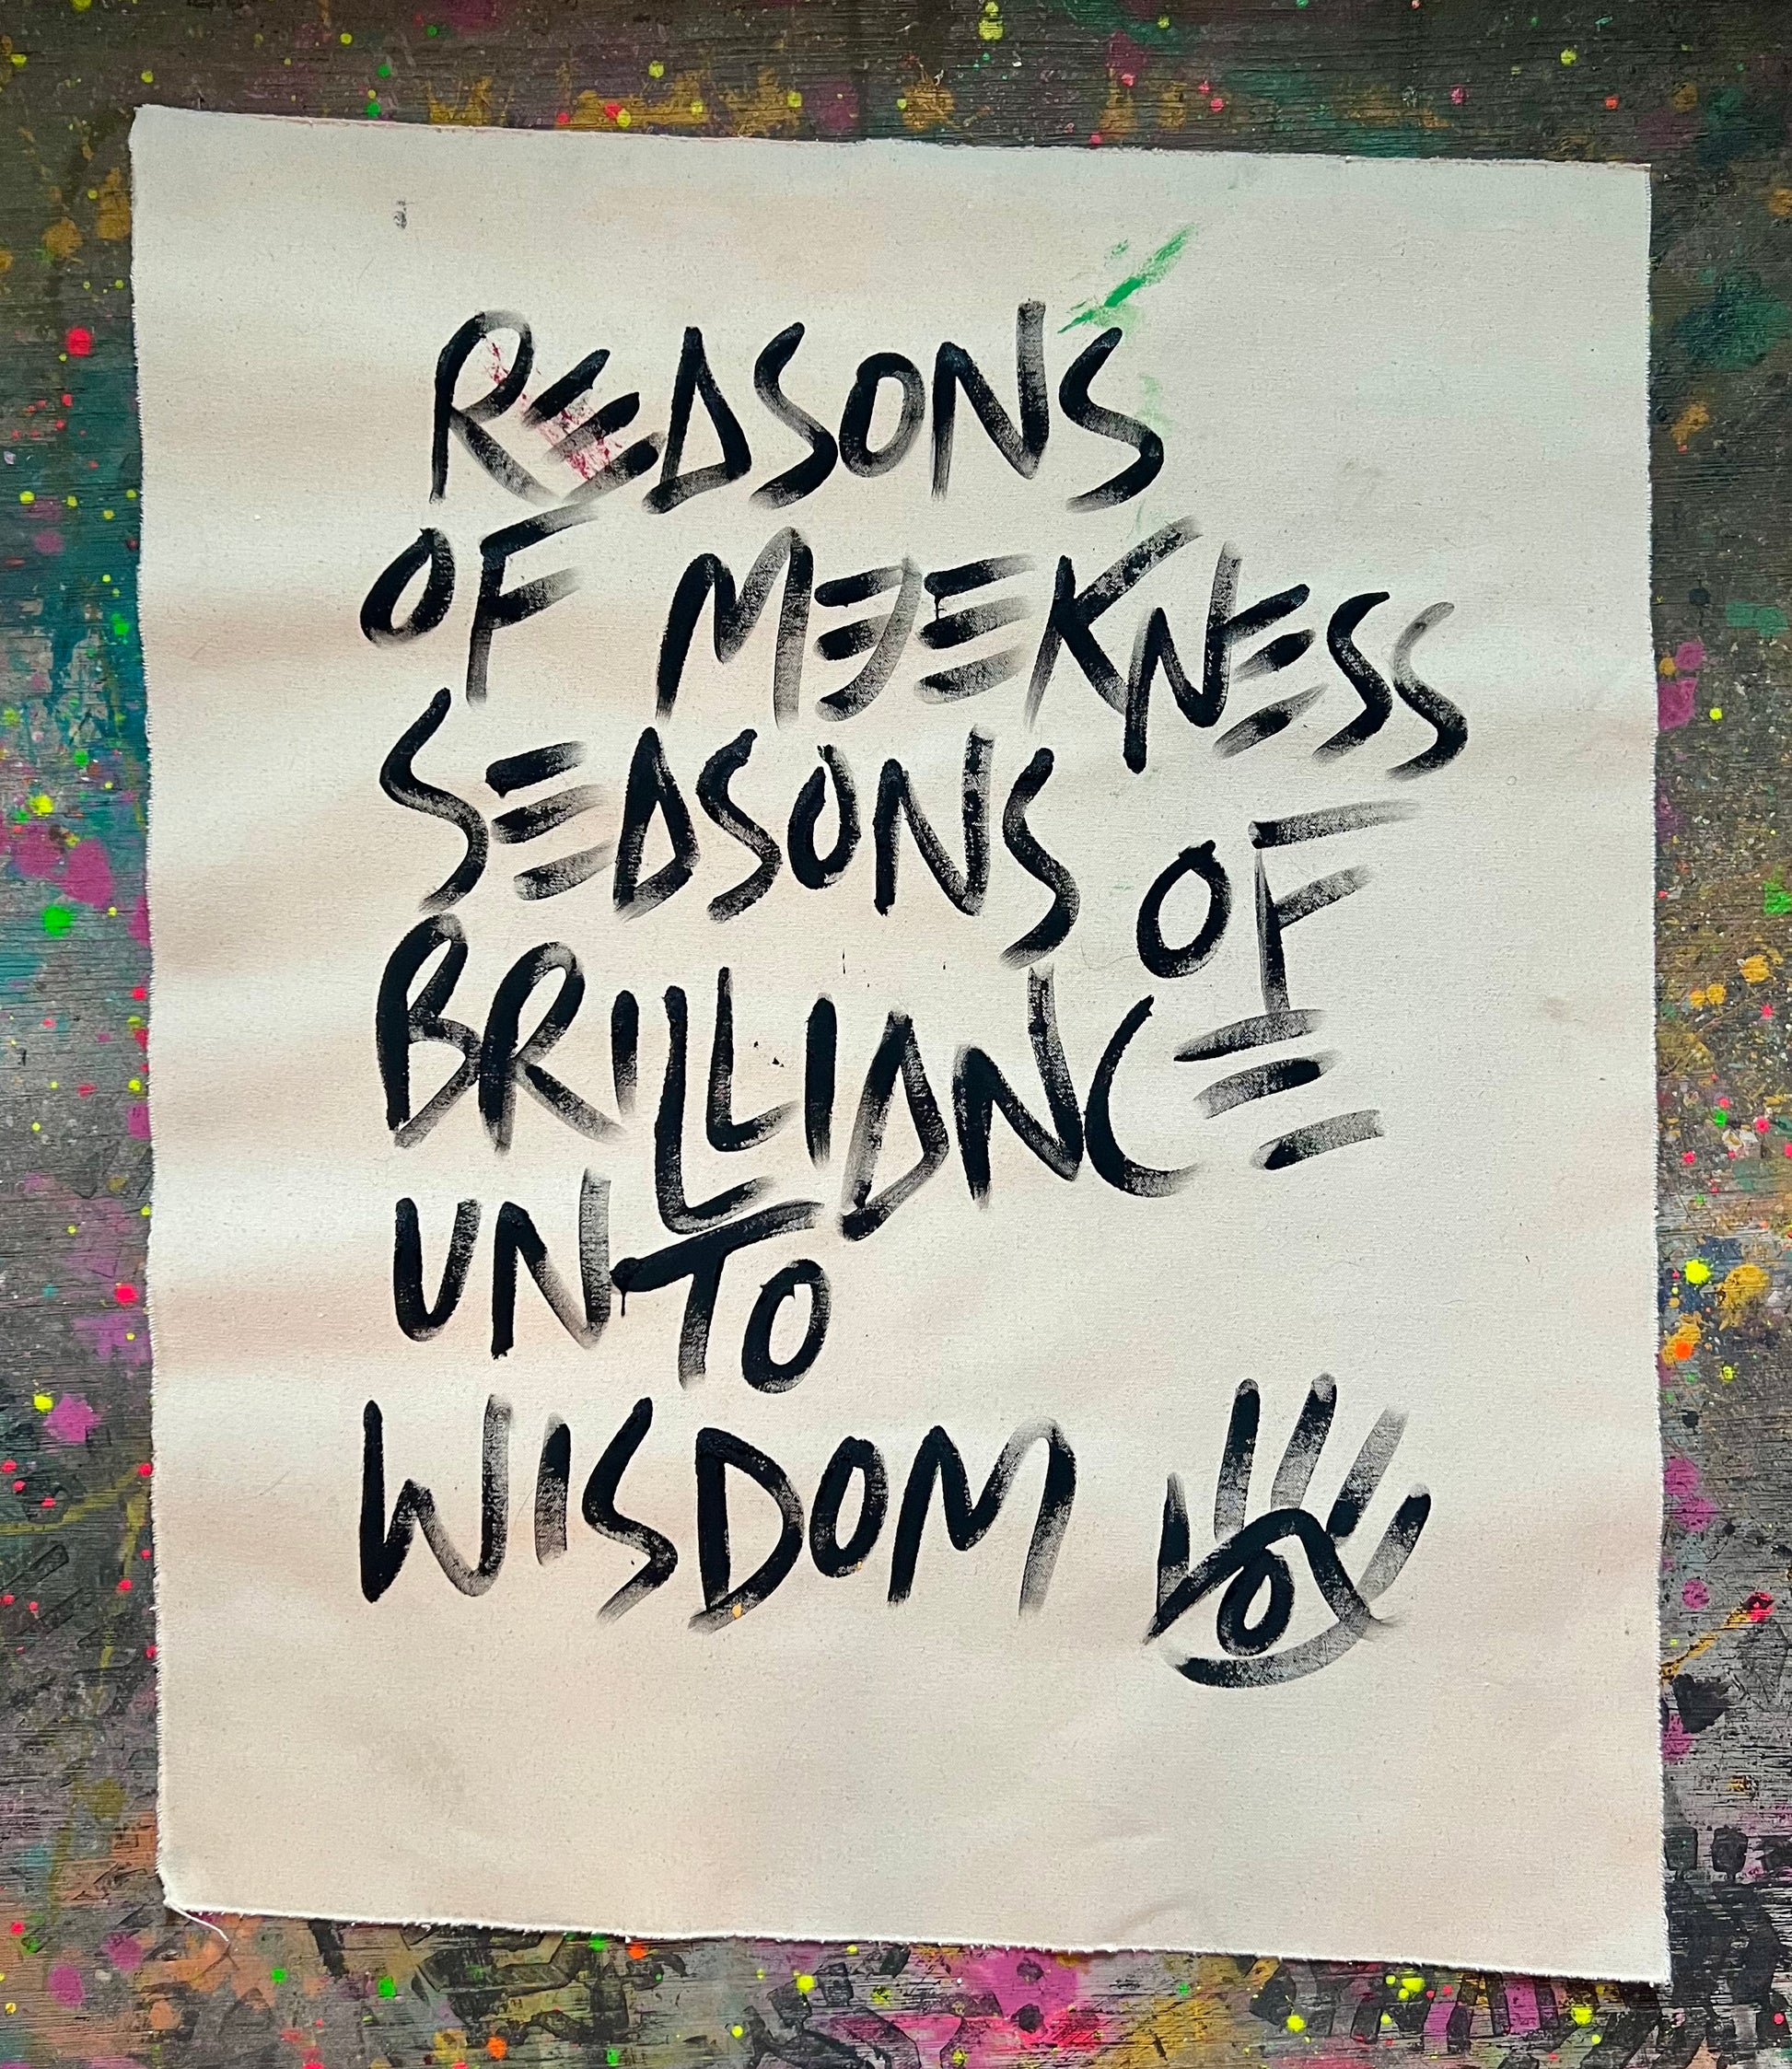 REASONS
OF MEEKNESS
SEASONS OF
BRILLIANCE
UNTO
WISDOM